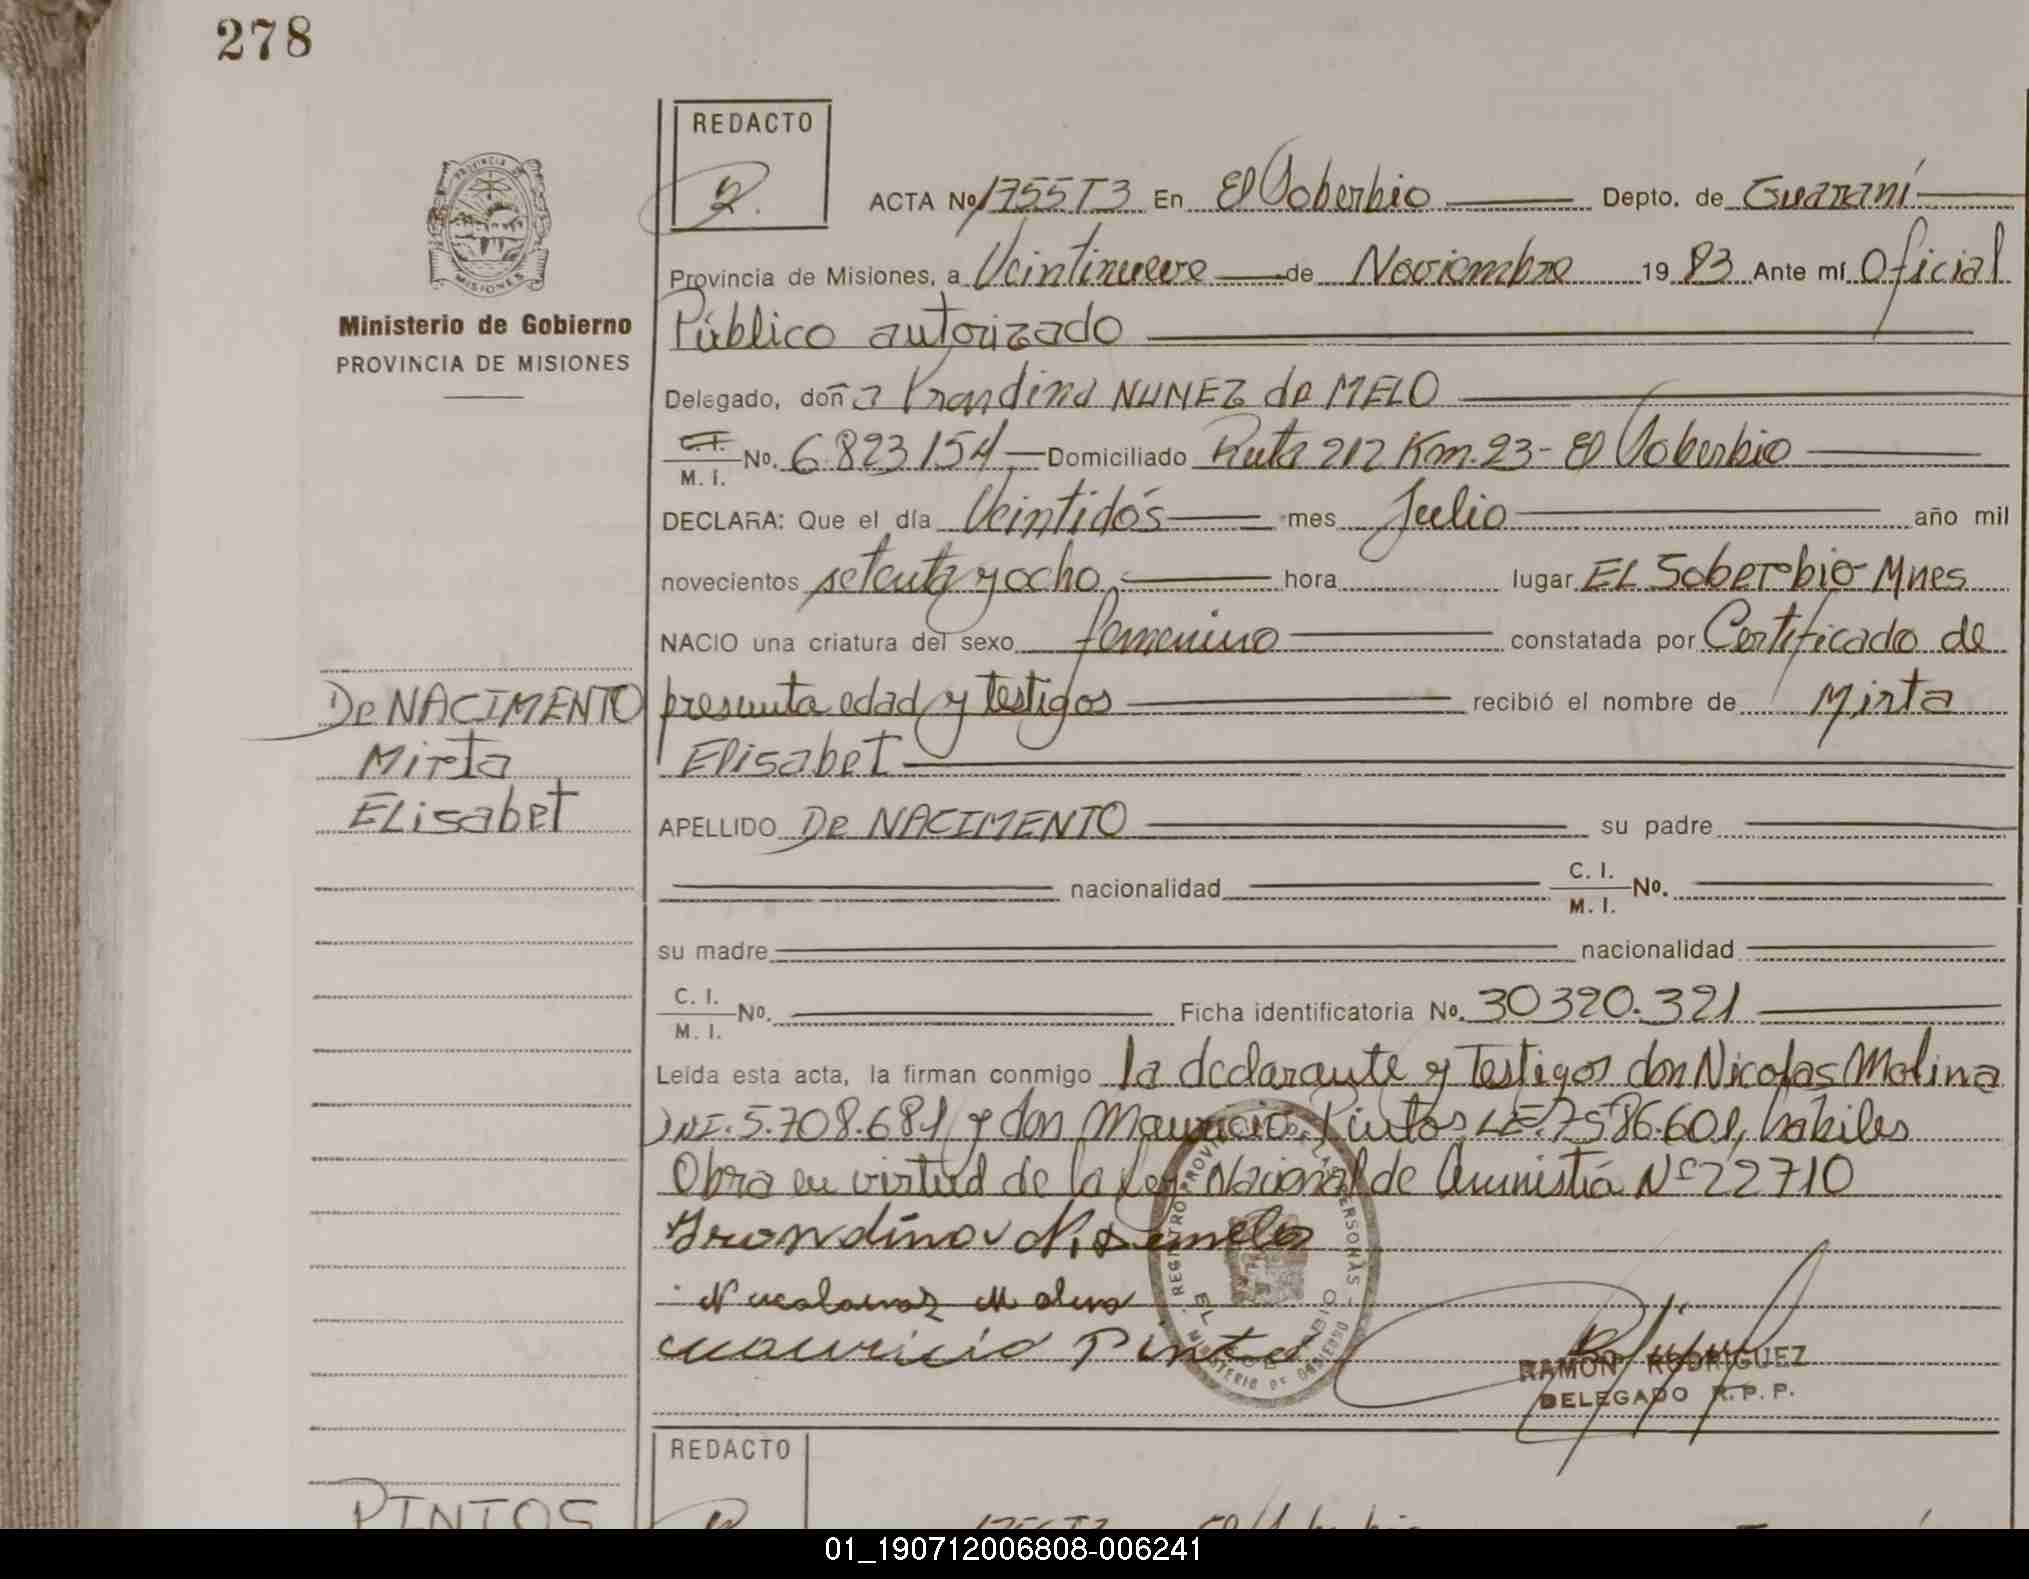 278
REDACTO
ACTA Nº 1755T3 En El Soberbio Depto. de Guaraní
PROVINCIA DE
MISIONES
Provincia de Misiones, a Veintinueve de Noviembre 19 83 Ante mí Oficial
Ministerio de Gobierno
PROVINCIA DE MISIONES
Público autorizado
Delegado, doña NUNEZ de MELO
C.I. M. I. No. 6.823154 Domiciliado Ruta 212 Km. 23 - El Soberbio
DECLARA: Que el día Veintidós mes Julio año mil
novecientos setenta y ocho hora lugar EL Soberbio - Mnes
NACIO una criatura del sexo femenino constatada por Certificado de
presunta edad y testigos recibió el nombre de Mirta
Elisabet
De NACIMENTO
Mirta
ELisabet
APELLIDO De NACIMENTO su padre
nacionalidad C. I. M. I. No.
su madre nacionalidad
C. I. M. I. No. Ficha identificatoria No. 30320.321
Leída esta acta, la firman conmigo la declarante y Testigos don Nicolas Molina
DNI. 5.708.681 y don Mauricio Pintos LE. 7586.601, habiles
Obra en virtud de la Ley Nacional de Amnistía Nº 22710
Mauricio Pinto
REGISTRO PROVINCIAL DE LAS PERSONAS
EL SOBERBIO
MINISTERIO DE GOBIERNO
RAMON RODRIGUEZ
DELEGADO R.P.P.
REDACTO
PINTOS
01_190712006808-006241